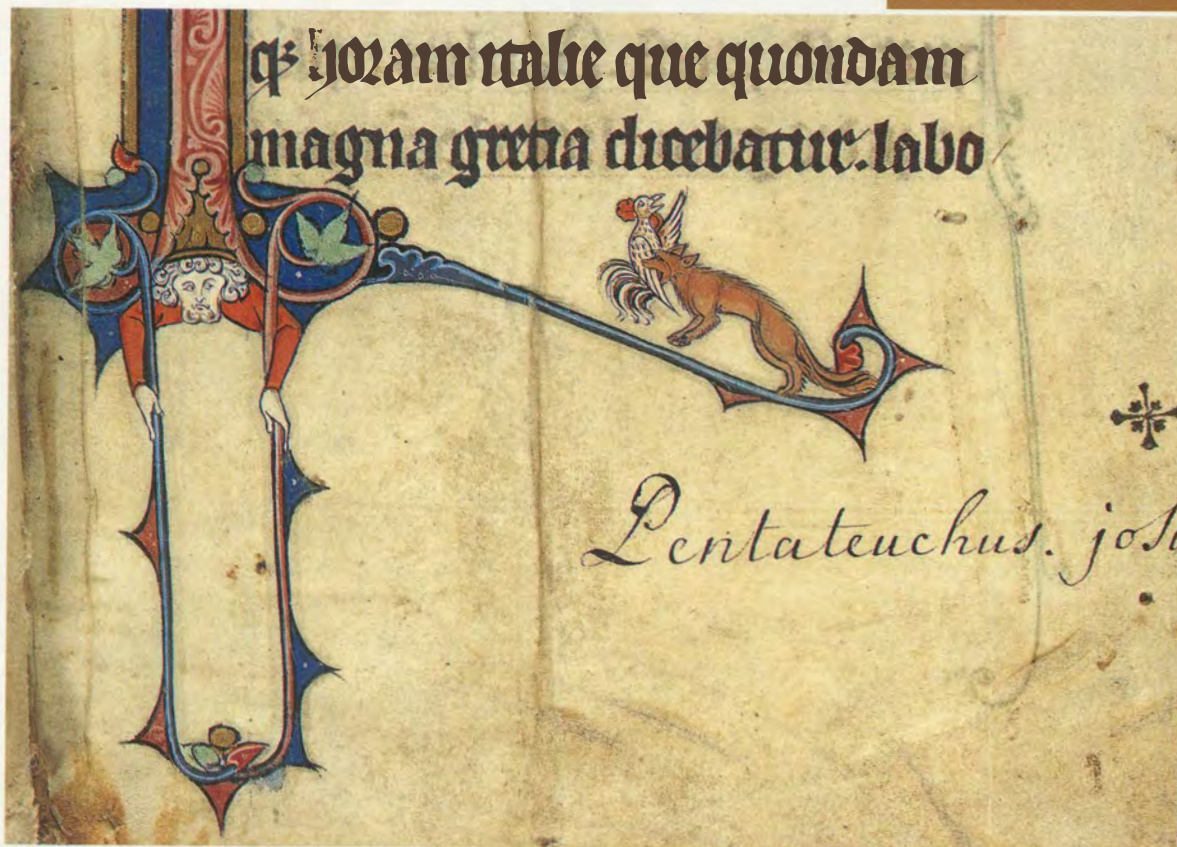 qꝫ horam italie que quondam
magna gretia dicebatur. labo
Pentateuchus. josu